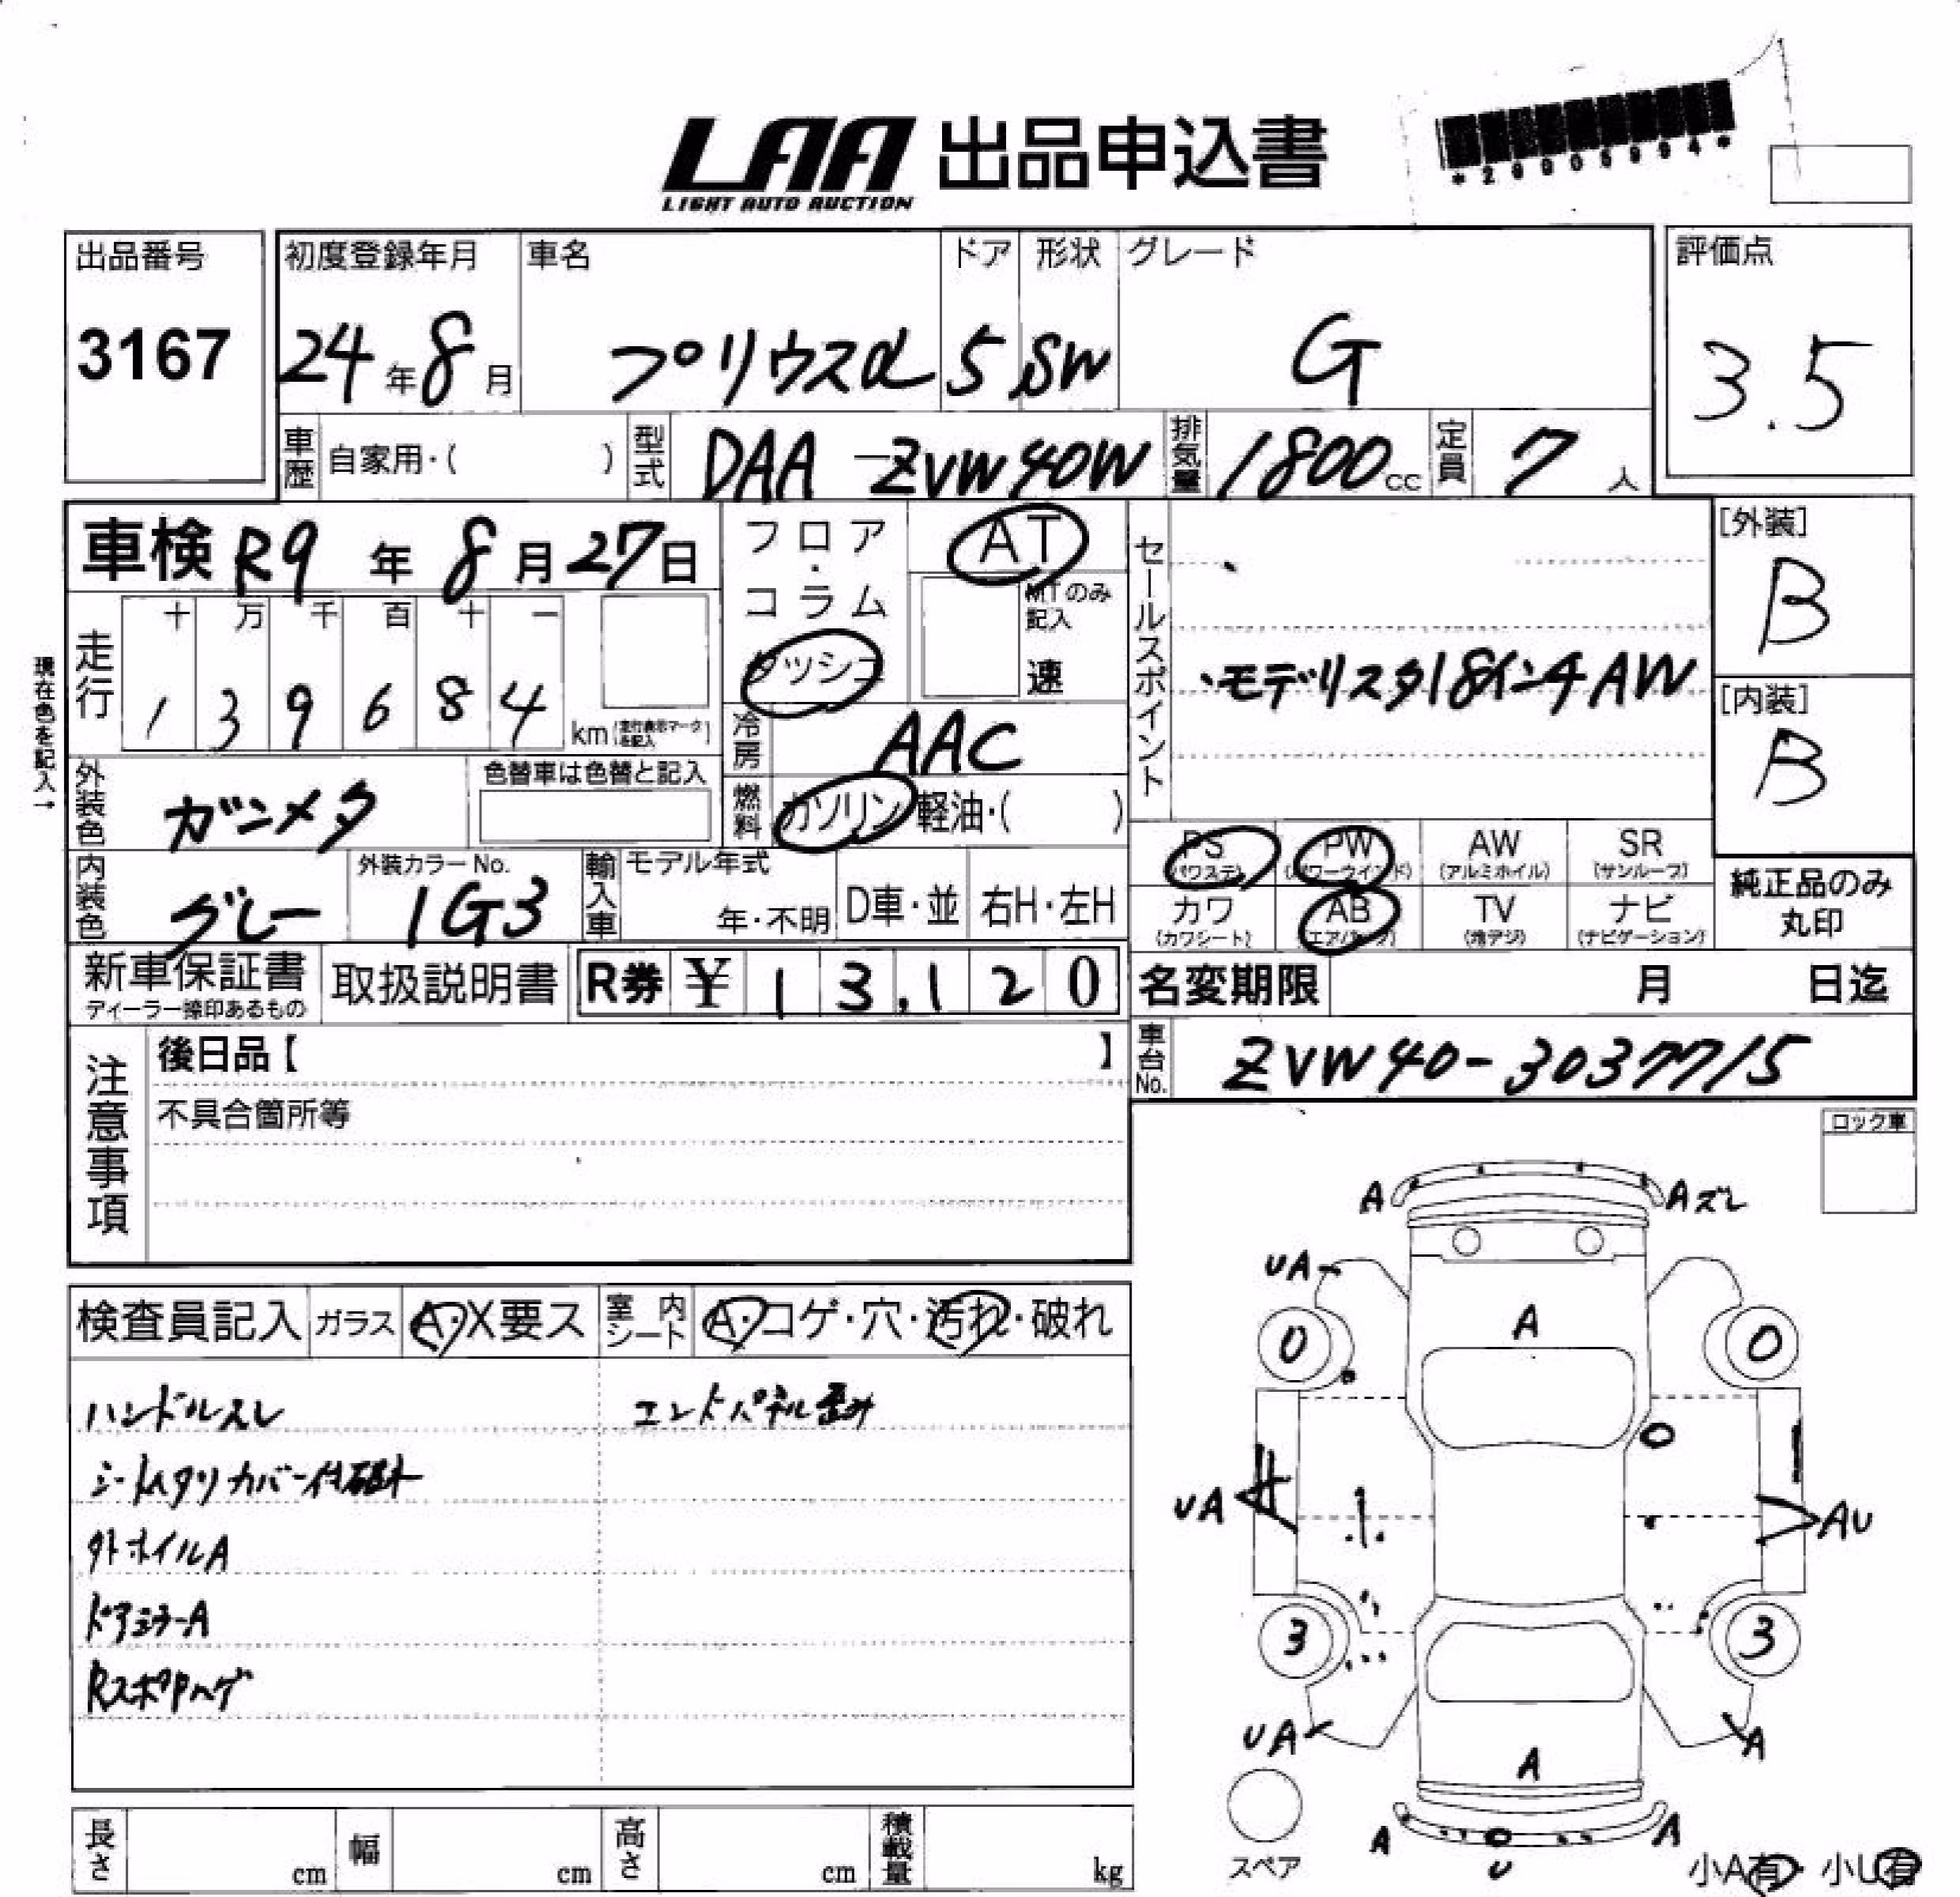 LAA 出品申込書
LIGHT AUTO AUCTION
出品番号
3167
初度登録年月
24年8月
車名
プリウスα
ドア
5
形状
SW
グレード
G
評価点
3.5
車歴 自家用・( )
型式 DAA-ZVW40W
排気量 1800cc
定員 7人
車検 R9年8月27日
フロア・コラム
ダッシュ
AT
MTのみ記入
速
セールスポイント
・
・モデリスタ18インチAW
[外装]
B
[内装]
B
現在色を記入→
走行
十 万 千 百 十 一
1 3 9 6 8 4 km(走行表示マークを記入)
冷房 AAC
外装色 ガンメタ
色替車は色替と記入
燃料 ガソリン 軽油・( )
内装色 グレー
外装カラーNo.
1G3
輸入車
モデル年式
年・不明
D車・並
右H・左H
PS (パワステ)
PW (パワーウインド)
AW (アルミホイル)
SR (サンルーフ)
カワ (カワシート)
AB (エアバッグ)
TV (地デジ)
ナビ (ナビゲーション)
純正品のみ丸印
新車保証書
ディーラー捺印あるもの
取扱説明書
R券 ¥ 13,120
名変期限 月 日迄
車台No. ZVW40-3037715
注意事項
後日品【 】
不具合箇所等
ロック車
検査員記入
ガラス A・X要ス
室内シート A・コゲ・穴・汚れ・破れ
ハンドルスレ
エンドパネル歪み
外ホイルA
ドアミラーA
A Aズレ
UA
A
0 0
UA AU
3 3
UA A
A
A U A
スペア
小A有・小U有
長さ cm
幅 cm
高さ cm
積載量 kg